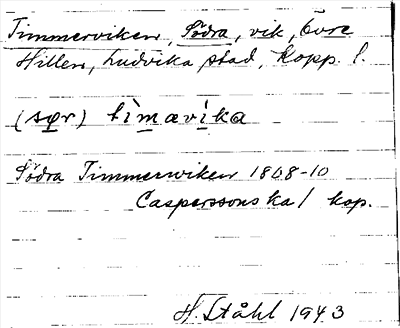 Timmerviken, Södra, vik, Övre
Hillen, Ludvika stad, Kopp. l.
(sør) tìmævìka
Södra Timmerwiken 1808-10
Casperssons ka/ kop.
H. Ståhl 1943